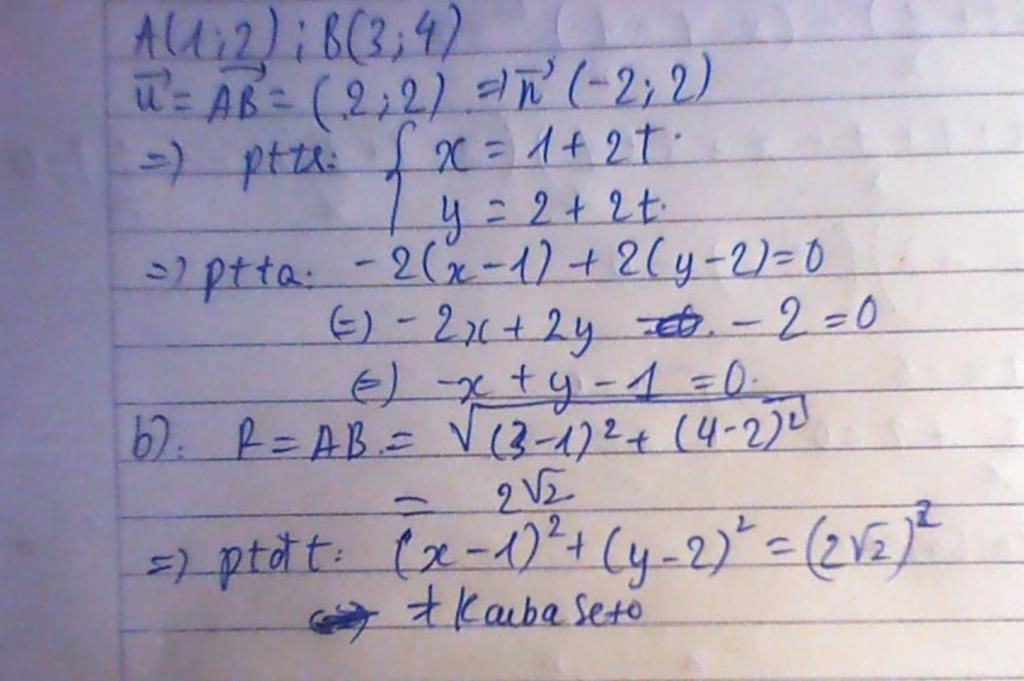 A(1;2) ; B(3;4)
u⃗ = AB⃗ = (2;2) => n⃗ (-2;2)
=) ptts: { x = 1 + 2t.
y = 2 + 2t.
=) ptta: -2(x-1) + 2(y-2) = 0
(=) -2x + 2y - 2 = 0
(=) -x + y - 1 = 0.
b). R = AB = √(3-1)² + (4-2)²
= 2√2
=) ptđtt: (x-1)² + (y-2)² = (2√2)²
≠ Kaiba Seto